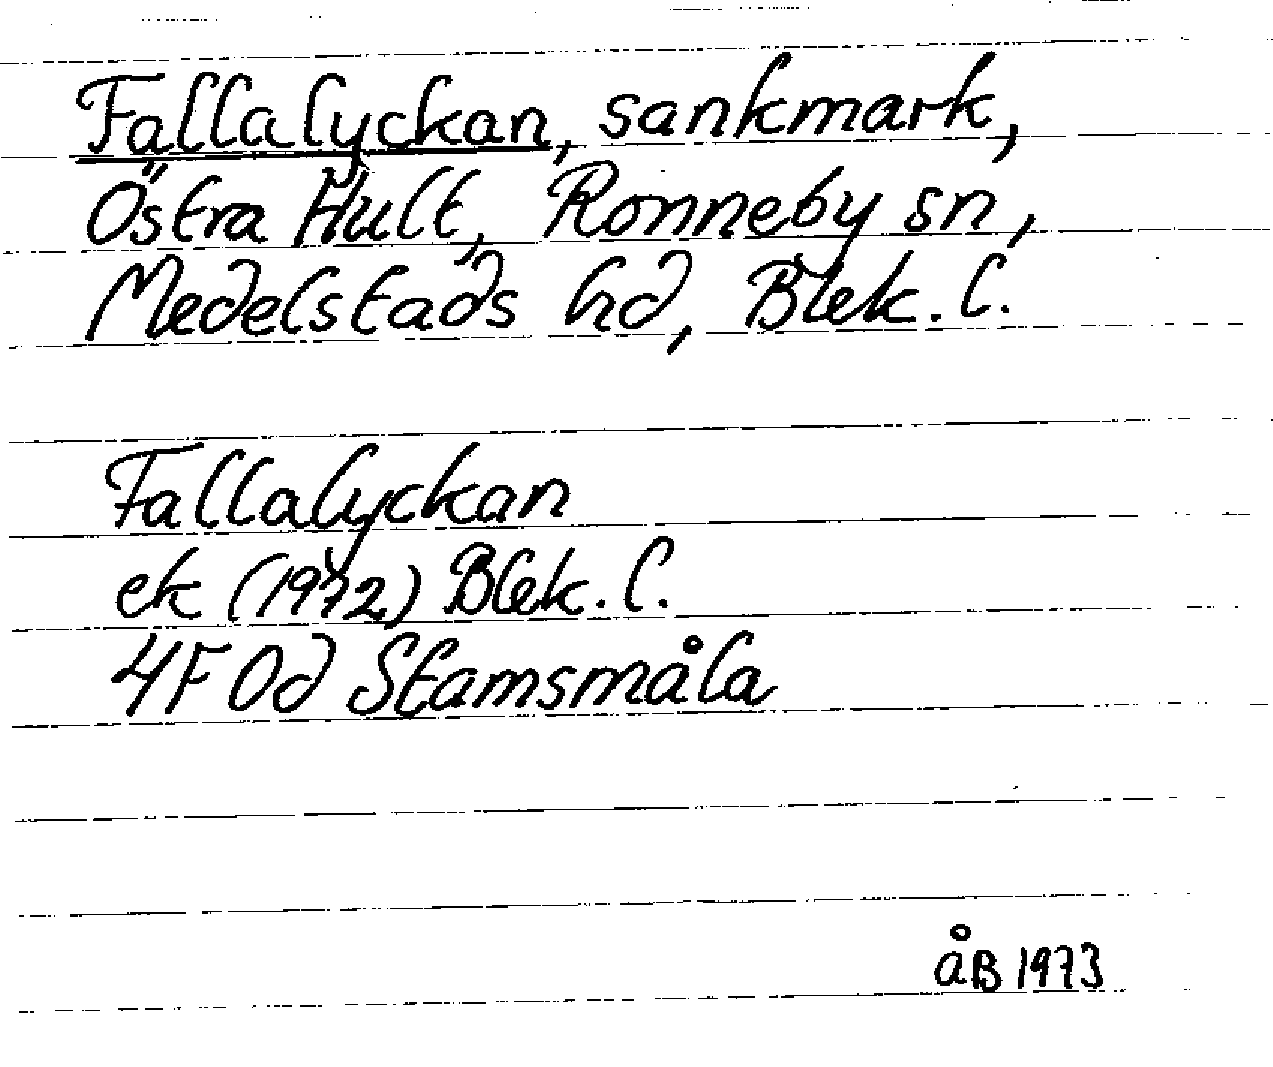 Fallalyckan, sankmark,
Östra Hult, Ronneby sn,
Medelstads hd, Blek. l.
Fallalyckan
ek (1972) Blek. l.
4F 0d Stamsmåla
åB 1973